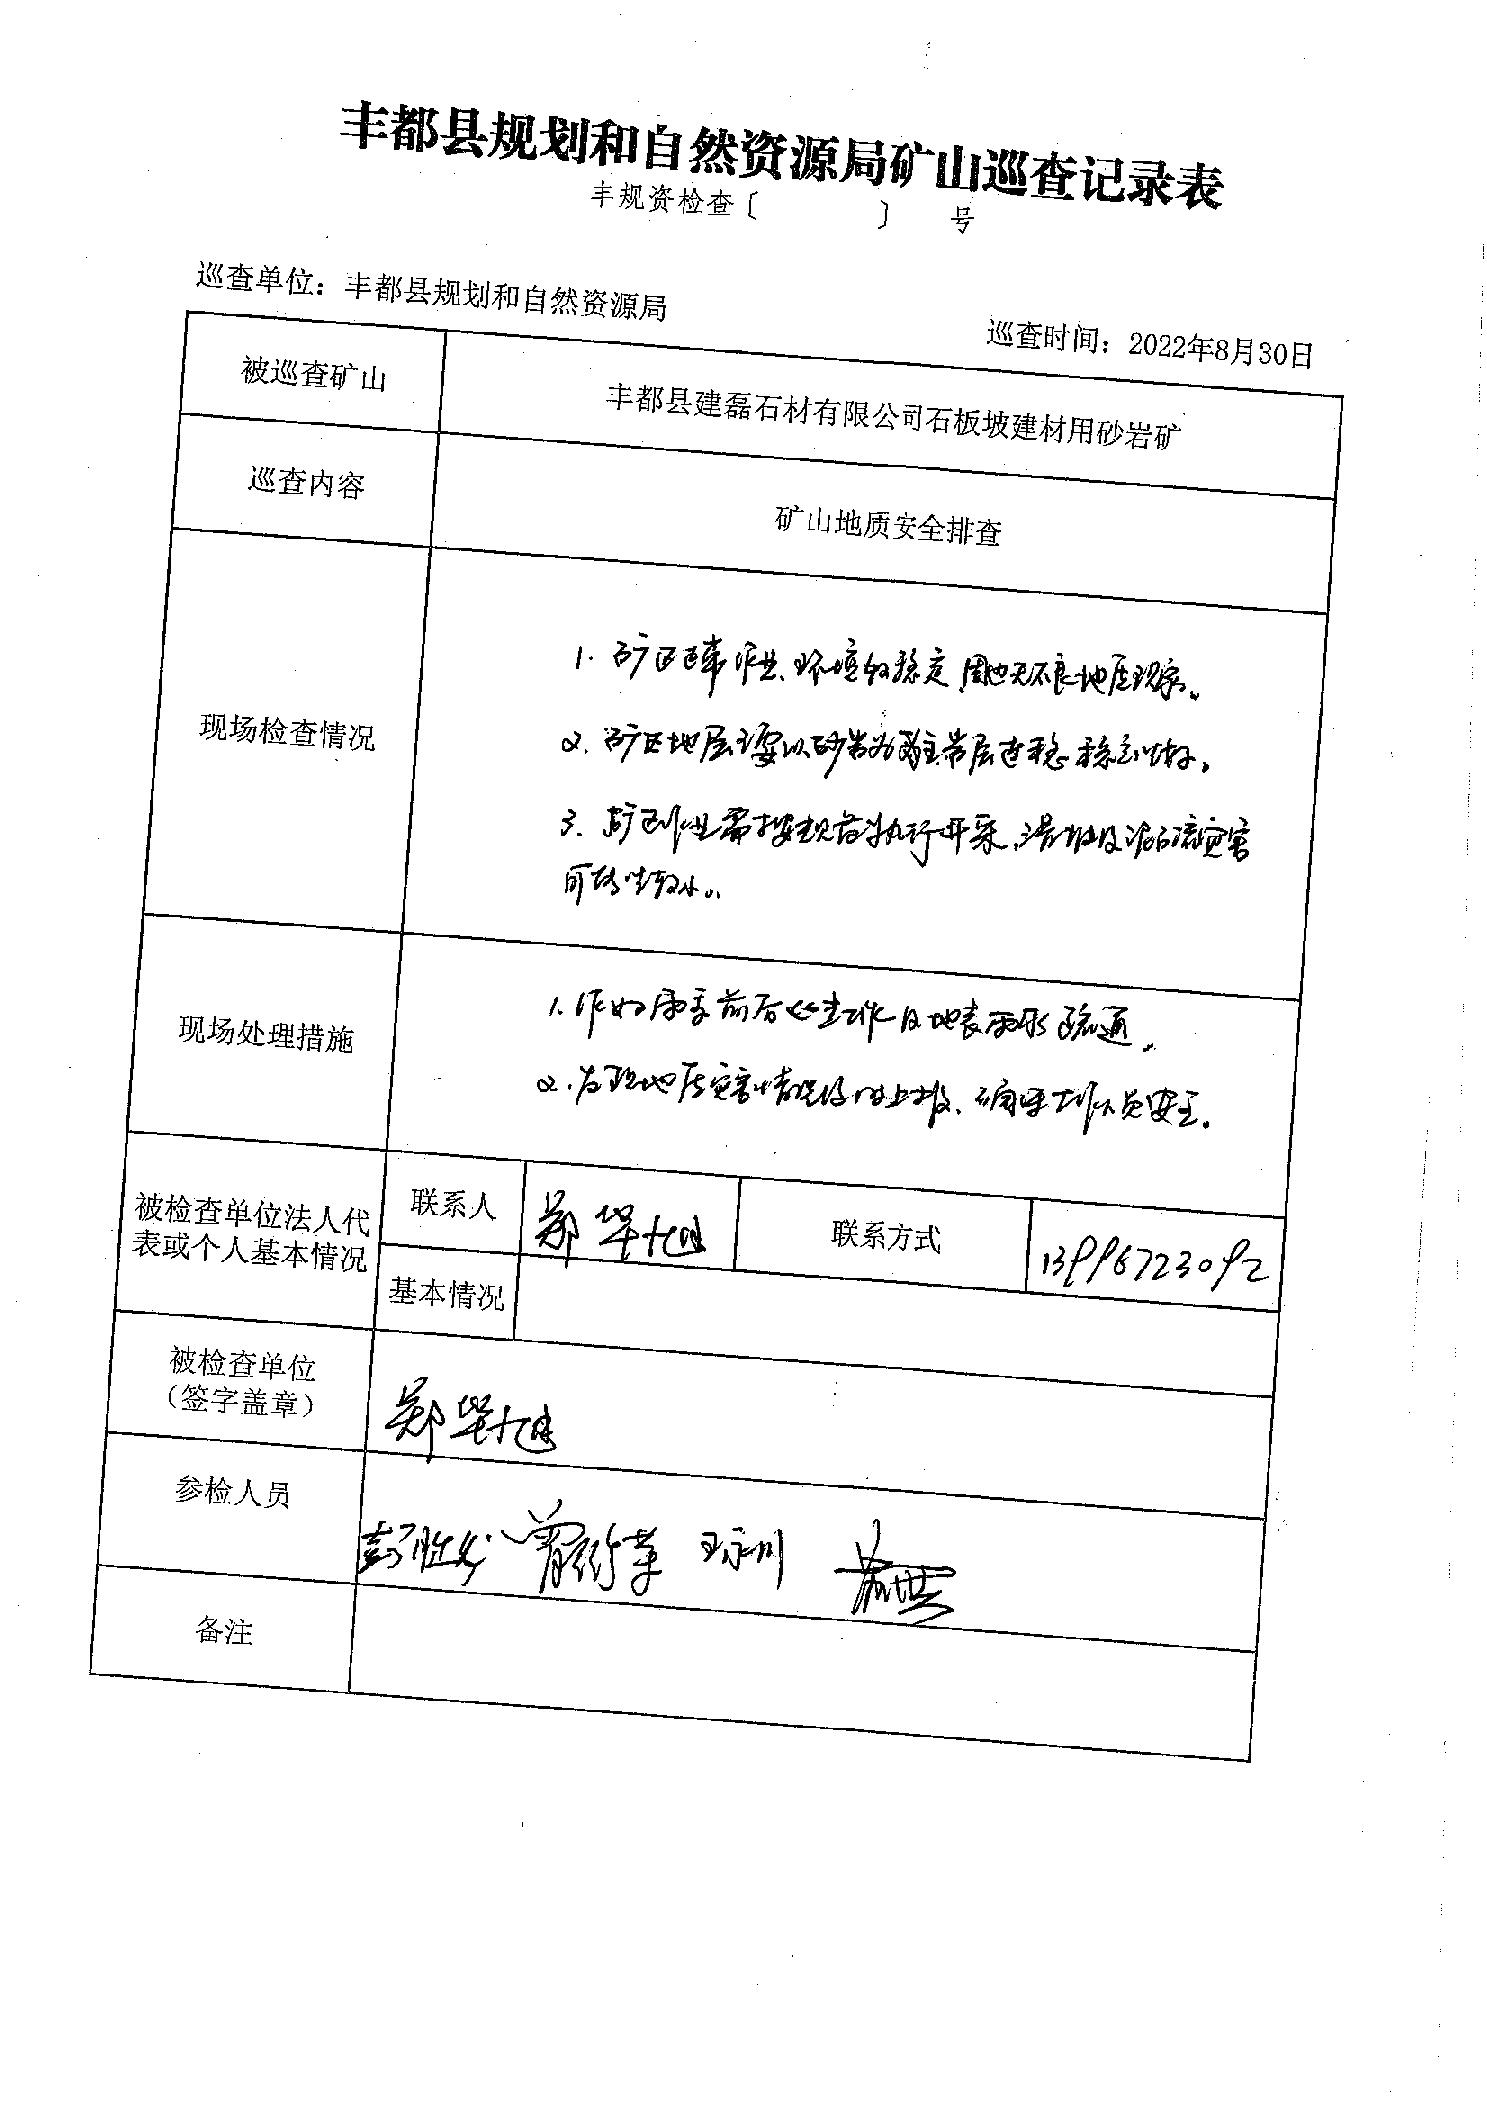 丰都县规划和自然资源局矿山巡查记录表
丰规资检查〔 〕 号
巡查单位：丰都县规划和自然资源局
巡查时间：2022年8月30日
被巡查矿山
丰都县建磊石材有限公司石板坡建材用砂岩矿
巡查内容
矿山地质安全排查
现场检查情况
1. 矿区 环境较稳定 周边无不良地质现象。
2. 矿区地层主要以砂岩为主岩层 稳 稳定性好。
3. 矿区作业需按规范执行开采，滑坡及泥石流灾害
可能性较小。
现场处理措施
1. 作好雨季前后 工作及地表雨水疏通。
2. 发现地质灾害情况及时上报、确保工作人员安全。
被检查单位法人代
表或个人基本情况
联系人
郑华旭
联系方式
13996723092
基本情况
被检查单位
（签字盖章）
郑华旭
参检人员
王永川
备注